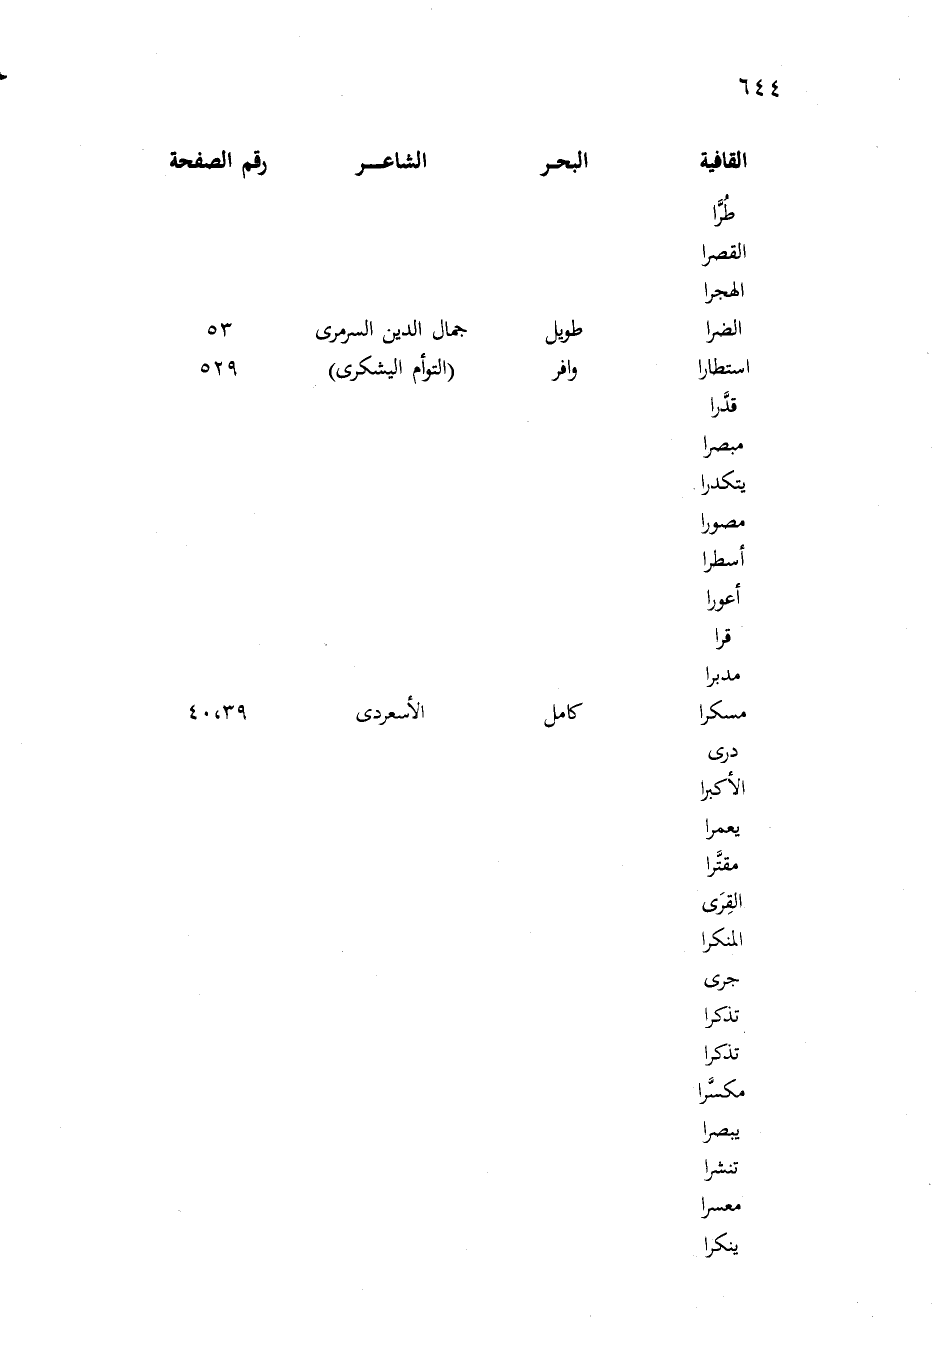 ٦٤٤
القافية البحـر الشاعـــر رقم الصفحة
طُرَّا
القصرا
الهجرا
الضرا طويل جمال الدين السرمرى ٥٣
استطارا وافر (التوأم اليشكرى) ٥٢٩
قدَّرا
مبصرا
يتكدرا
مصورا
أسطرا
أعورا
قرا
مدبرا
مسكرا كامل الأسعردى ٤٠،٣٩
درى
الأكبرا
يعمرا
مقتَّرا
القِرَى
المنكرا
جرى
تذكرا
تذكرا
مكسَّرا
يبصرا
تنشرا
معسرا
ينكرا